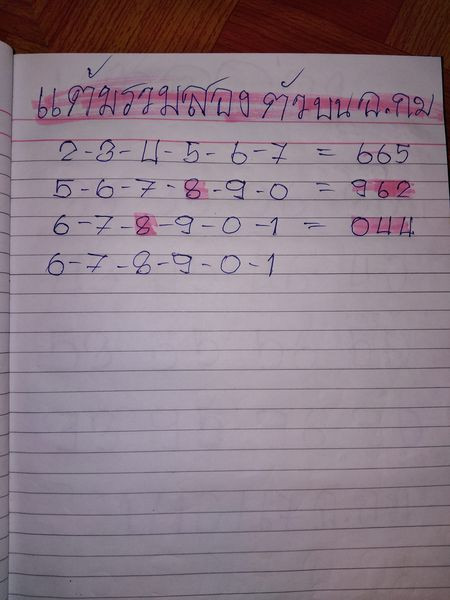 แต้มรวมสองตัวบน อ.กบ
2-3-4-5-6-7 = 665
5-6-7-8-9-0 = 962
6-7-8-9-0-1 = 044
6-7-8-9-0-1